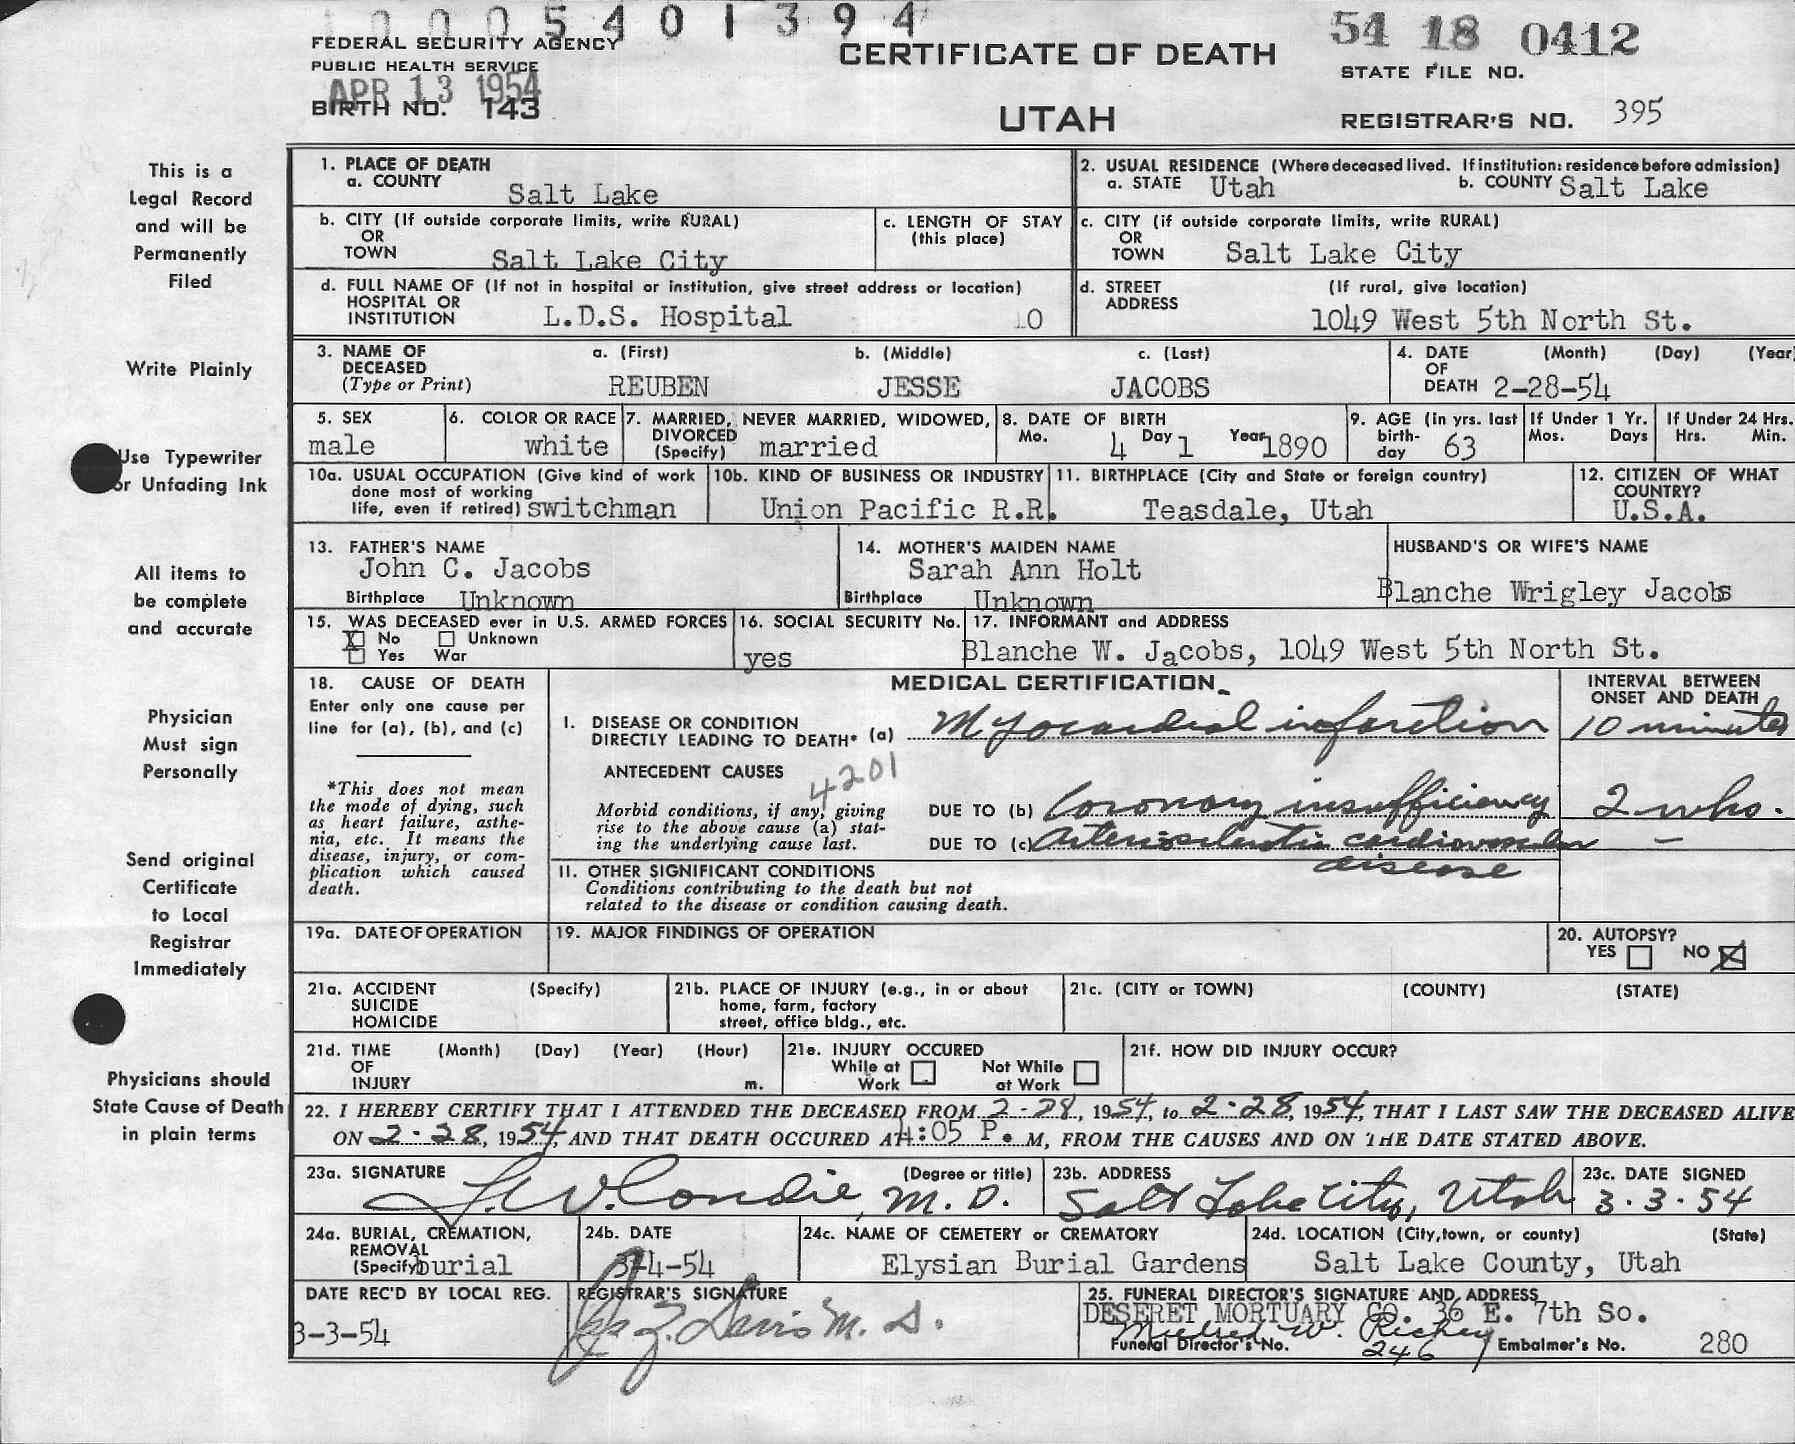 0005401394
54 18 0412
FEDERAL SECURITY AGENCY
CERTIFICATE OF DEATH
STATE FILE NO.
PUBLIC HEALTH SERVICE
APR 13 1954
BIRTH NO. 143
UTAH
REGISTRAR'S NO. 395
This is a
Legal Record
and will be
Permanently
Filed
Write Plainly
Use Typewriter
or Unfading Ink
All items to
be complete
and accurate
Physician
Must sign
Personally
Send original
Certificate
to Local
Registrar
Immediately
Physicians should
State Cause of Death
in plain terms
1. PLACE OF DEATH
a. COUNTY Salt Lake
2. USUAL RESIDENCE (Where deceased lived. If institution: residence before admission)
a. STATE Utah b. COUNTY Salt Lake
b. CITY (If outside corporate limits, write RURAL)
OR
TOWN Salt Lake City
c. LENGTH OF STAY
(this place)
c. CITY (if outside corporate limits, write RURAL)
OR
TOWN Salt Lake City
d. FULL NAME OF (If not in hospital or institution, give street address or location)
HOSPITAL OR
INSTITUTION L.D.S. Hospital 0
d. STREET (If rural, give location)
ADDRESS
1049 West 5th North St.
3. NAME OF DECEASED (Type or Print)
a. (First) b. (Middle) c. (Last)
REUBEN JESSE JACOBS
4. DATE (Month) (Day) (Year)
OF
DEATH 2-28-54
5. SEX
male
6. COLOR OR RACE
white
7. MARRIED, NEVER MARRIED, WIDOWED,
DIVORCED
(Specify) married
8. DATE OF BIRTH
Mo. 4 Day 1 Year 1890
9. AGE (in yrs. last
birth-
day 63
If Under 1 Yr.
Mos. Days
If Under 24 Hrs.
Hrs. Min.
10a. USUAL OCCUPATION (Give kind of work
done most of working
life, even if retired) switchman
10b. KIND OF BUSINESS OR INDUSTRY
Union Pacific R.R.
11. BIRTHPLACE (City and State or foreign country)
Teasdale, Utah
12. CITIZEN OF WHAT
COUNTRY?
U.S.A.
13. FATHER'S NAME
John C. Jacobs
Birthplace Unknown
14. MOTHER'S MAIDEN NAME
Sarah Ann Holt
Birthplace Unknown
HUSBAND'S OR WIFE'S NAME
Blanche Wrigley Jacobs
15. WAS DECEASED ever in U.S. ARMED FORCES
X No Unknown
Yes War
16. SOCIAL SECURITY No.
yes
17. INFORMANT and ADDRESS
Blanche W. Jacobs, 1049 West 5th North St.
18. CAUSE OF DEATH
Enter only one cause per
line for (a), (b), and (c)
*This does not mean
the mode of dying, such
as heart failure, asthe-
nia, etc. It means the
disease, injury, or com-
plication which caused
death.
MEDICAL CERTIFICATION
INTERVAL BETWEEN
ONSET AND DEATH
I. DISEASE OR CONDITION
DIRECTLY LEADING TO DEATH* (a) Myocardial infarction 10 minutes
ANTECEDENT CAUSES
4201
Morbid conditions, if any, giving
rise to the above cause (a) stat-
ing the underlying cause last.
DUE TO (b) Coronary insufficiency 2 wks.
DUE TO (c) Arteriosclerotic cardiovascular –
disease
II. OTHER SIGNIFICANT CONDITIONS
Conditions contributing to the death but not
related to the disease or condition causing death.
19a. DATE OF OPERATION
19. MAJOR FINDINGS OF OPERATION
20. AUTOPSY?
YES NO X
21a. ACCIDENT (Specify)
SUICIDE
HOMICIDE
21b. PLACE OF INJURY (e.g., in or about
home, farm, factory
street, office bldg., etc.
21c. (CITY or TOWN) (COUNTY) (STATE)
21d. TIME (Month) (Day) (Year) (Hour)
OF
INJURY m.
21e. INJURY OCCURED
While at Work Not While at Work
21f. HOW DID INJURY OCCUR?
22. I HEREBY CERTIFY THAT I ATTENDED THE DECEASED FROM 2-28, 1954, to 2-28, 1954, THAT I LAST SAW THE DECEASED ALIVE
ON 2-28, 1954, AND THAT DEATH OCCURED AT 4:05 P. M, FROM THE CAUSES AND ON THE DATE STATED ABOVE.
23a. SIGNATURE (Degree or title)
Condie, M.D.
23b. ADDRESS
Salt Lake City, Utah
23c. DATE SIGNED
3-3-54
24a. BURIAL, CREMATION,
REMOVAL
(Specify) burial
24b. DATE
3-4-54
24c. NAME OF CEMETERY or CREMATORY
Elysian Burial Gardens
24d. LOCATION (City, town, or county) (State)
Salt Lake County, Utah
DATE REC'D BY LOCAL REG.
3-3-54
REGISTRAR'S SIGNATURE
M.D.
25. FUNERAL DIRECTOR'S SIGNATURE AND ADDRESS
DESERET MORTUARY CO. 36 E. 7th So.
Mildred W. Richey
Funeral Director's No. 246 Embalmer's No. 280